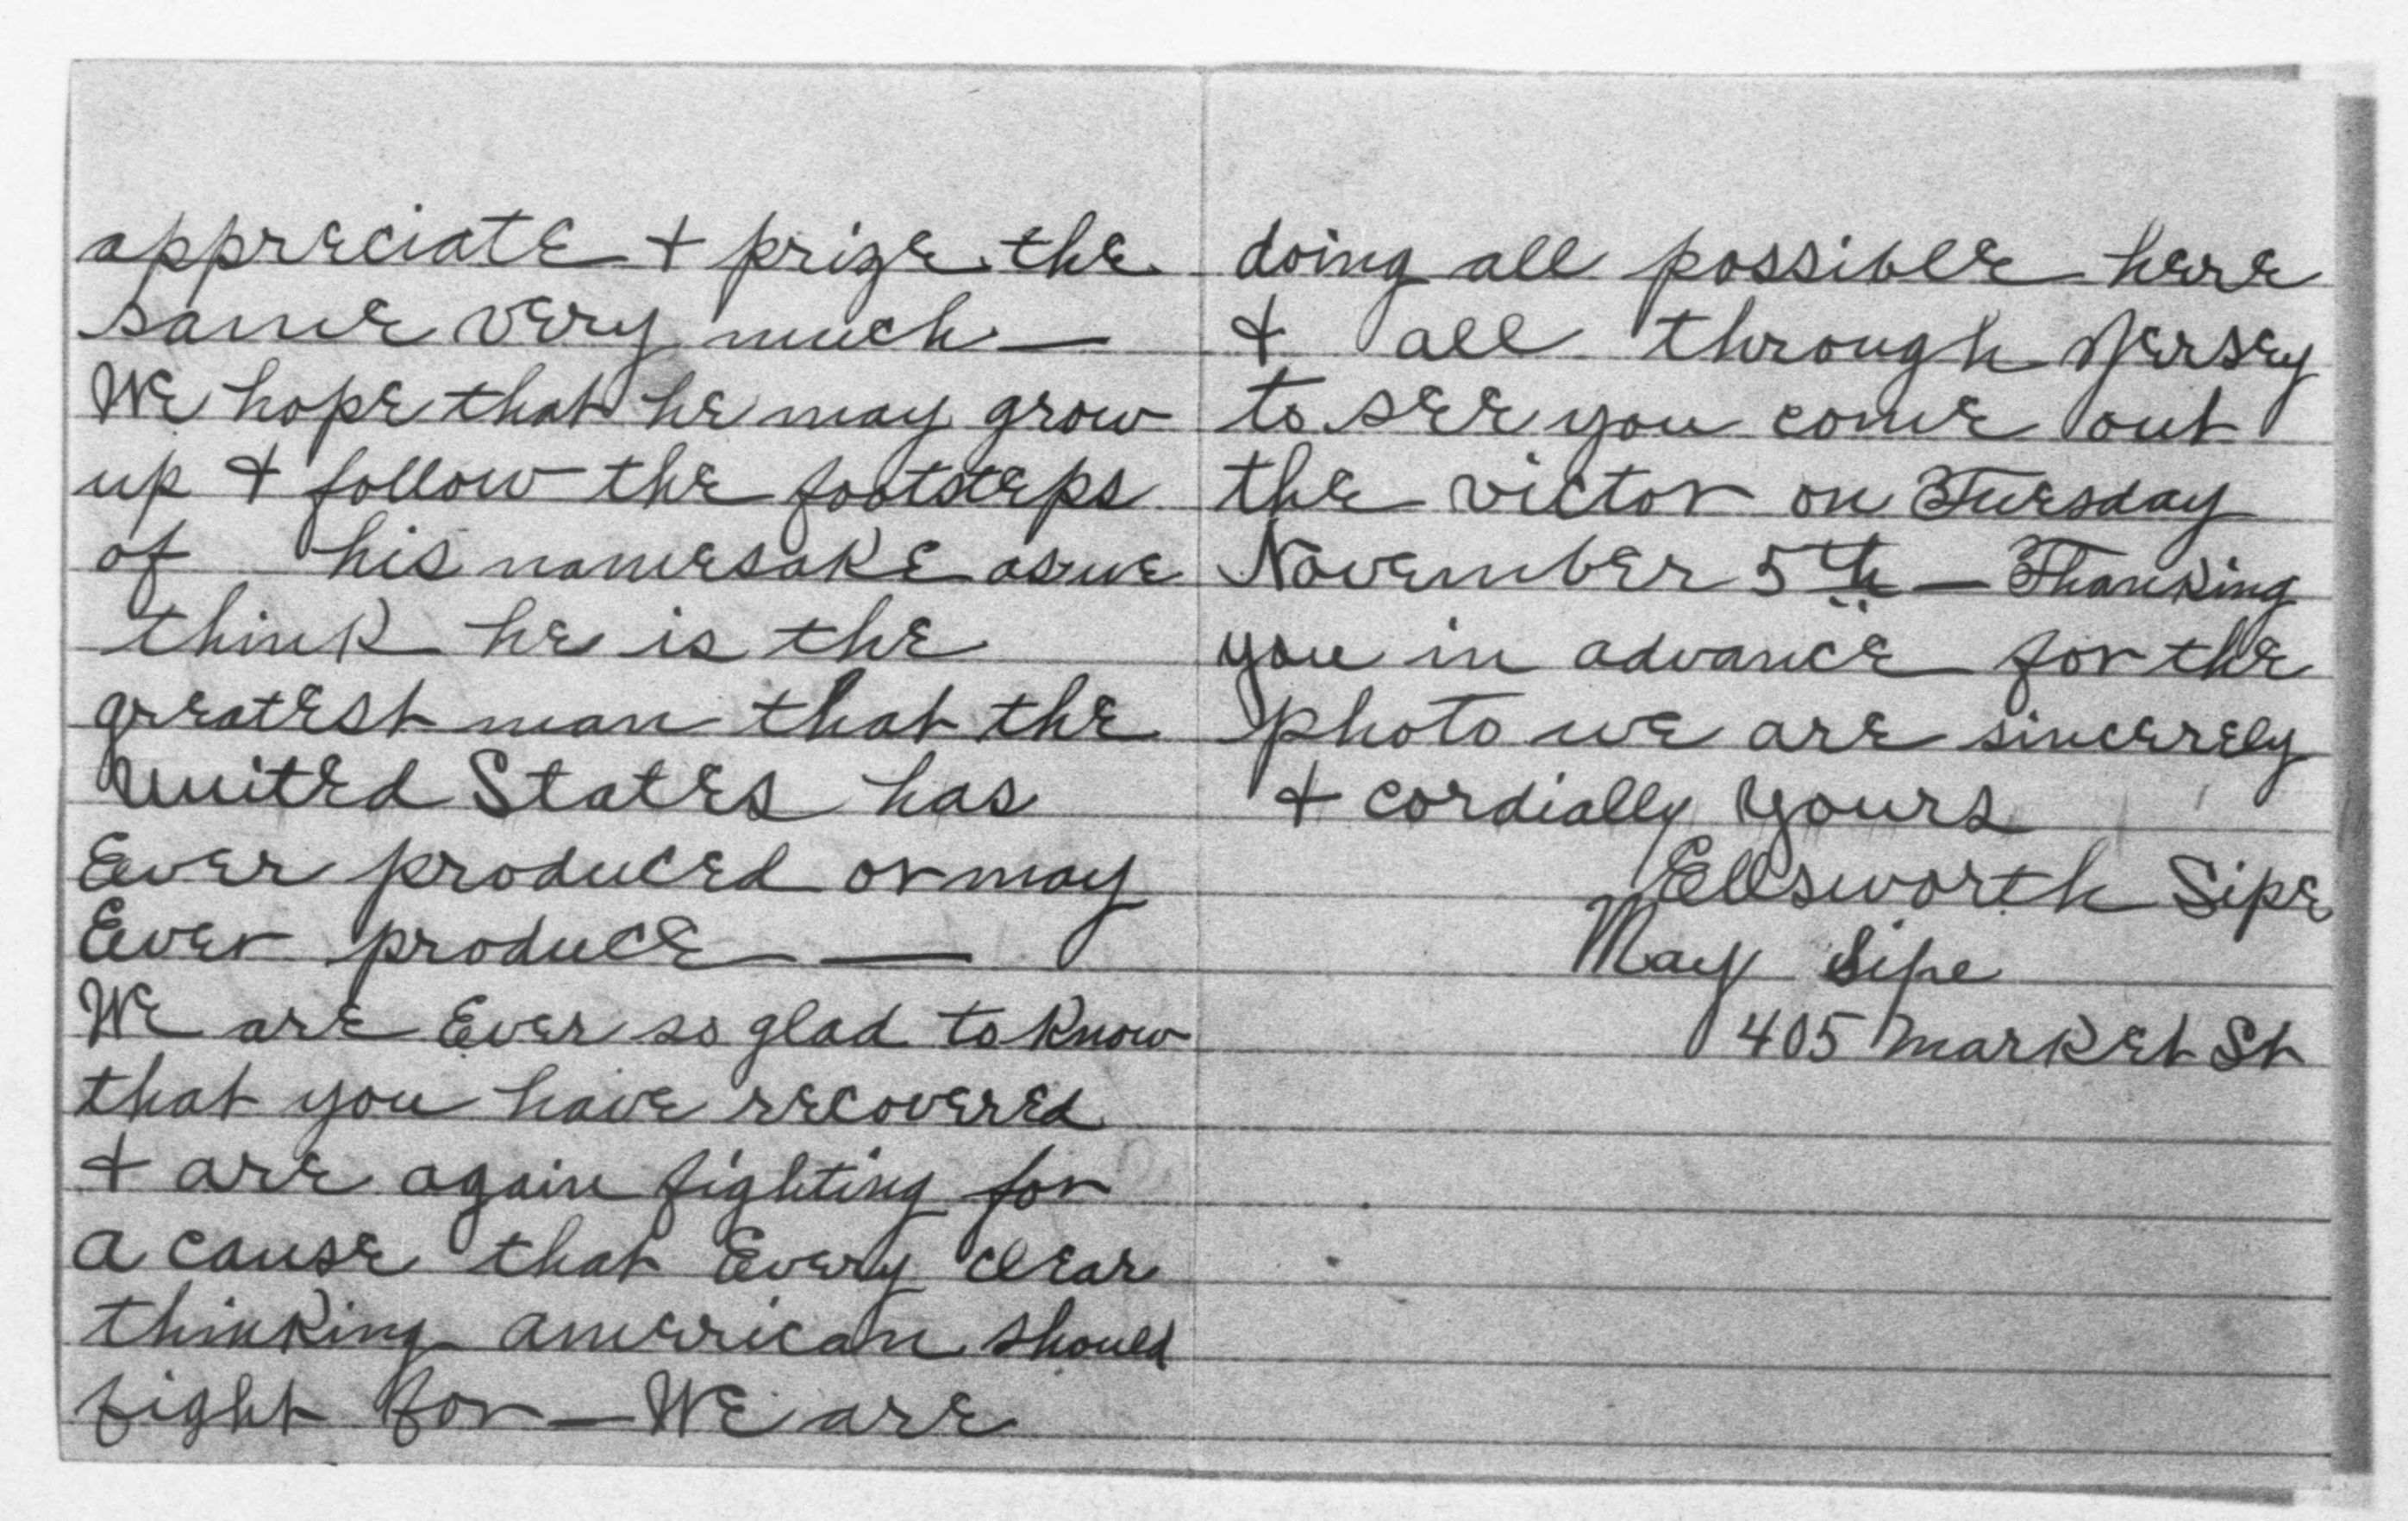 appreciate + prize the
same very much —
We hope that he may grow
up + follow the footsteps
of his namesake as we
think he is the
greatest man that the
United States has
Ever produced or may
Ever produce —
We are Ever so glad to know
that you have recovered
+ are again fighting for
a cause that Every clear
thinking american should
fight for — We are
doing all possible here
+ all through Jersey
to see you come out
the victor on Tuesday
November 5th — Thanking
you in advance for the
photo we are sincerely
+ cordially yours
Ellsworth Sipe
May Sipe
405 Market St